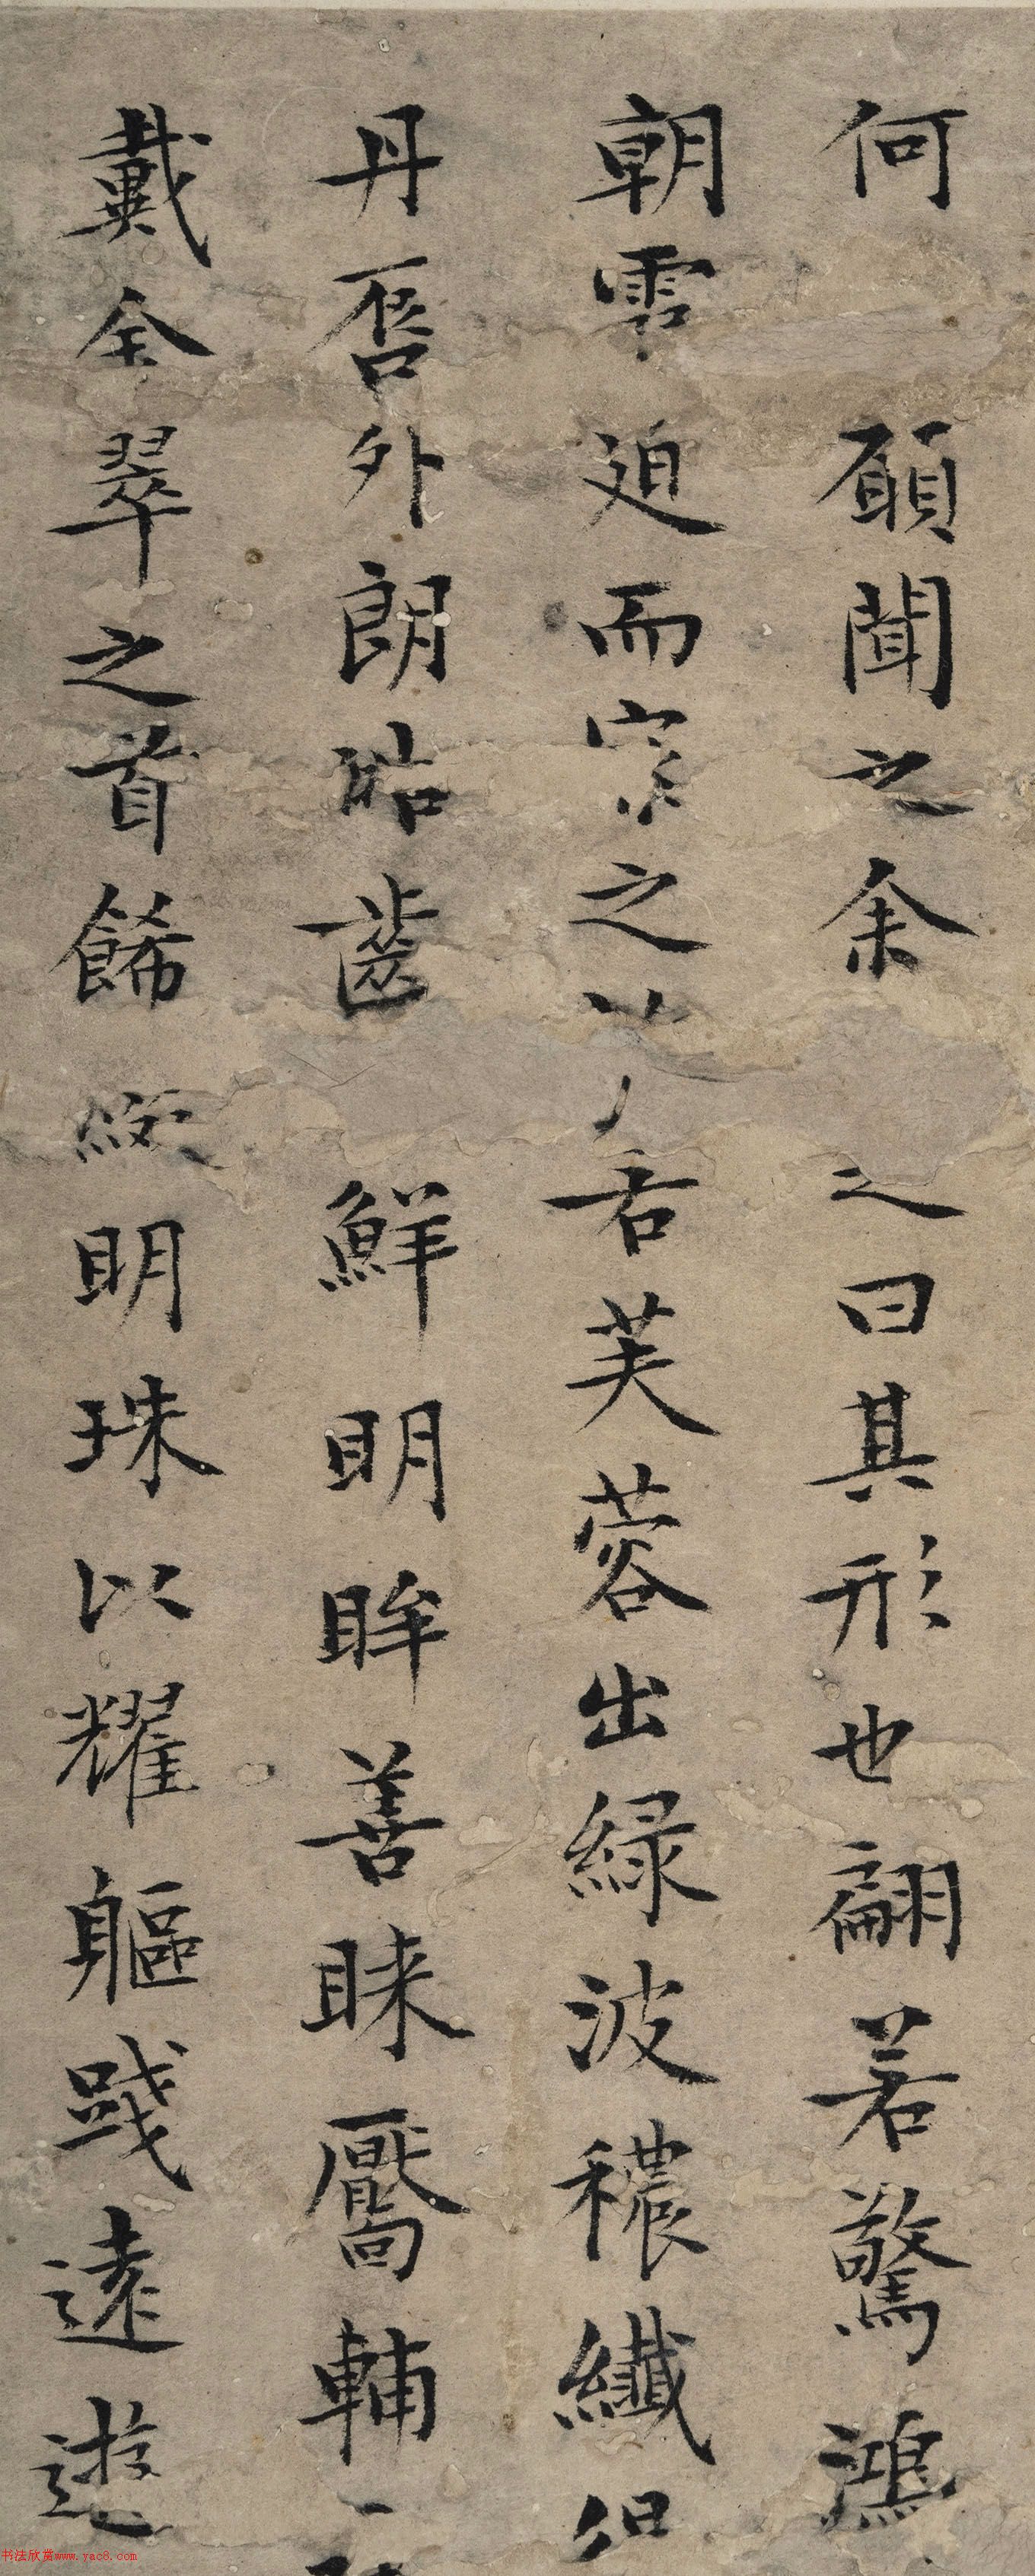 何 願聞之余 之曰其形也翩若驚鴻
朝雲 迫而察之 若芙蓉出綠波穠纖
丹脣外朗皓齒 鮮明眸善睞靨輔
戴金翠之首餙綴明珠以耀軀踐遠遊
书法欣赏www.yac8.com